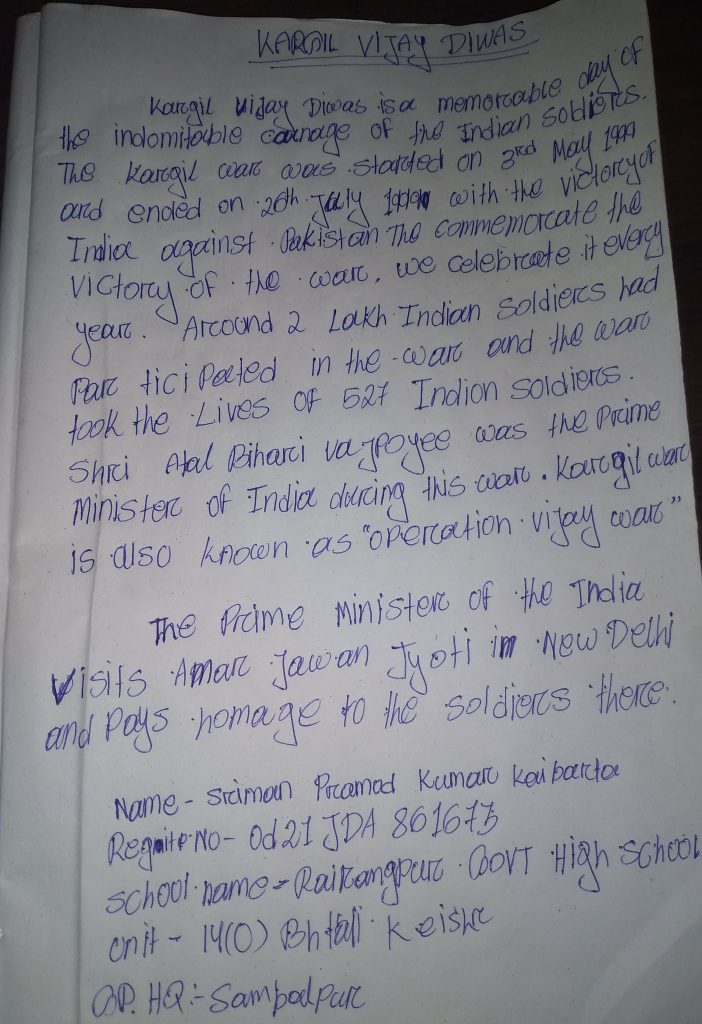 KARGIL VIJAY DIWAS
Kargil Vijay Diwas is a memorable day of
the indomitable courage of the Indian soldiers.
The Kargil war was started on 3rd May 1999
and ended on 26th July 1999 with the victory of
India against Pakistan The commemorate the
victory of the war, we celebrate it every
year. Around 2 Lakh Indian soldiers had
Par ticipated in the war and the war
took the Lives of 527 Indian soldiers.
Shri Atal Bihari vajpoyee was the Prime
Minister of India during this war. Kargil war
is also known as "operation vijay war"
The Prime Minister of the India
Visits Amar Jawan Jyoti in New Delhi
and Pays homage to the soldiers there.
Name - Sriman Pramod Kumar Kaibarta
No - Od21 JDA 861675
School name - Rairangpur Govt High School
unit - 14(O)
GP. HQ:- Sambalpur